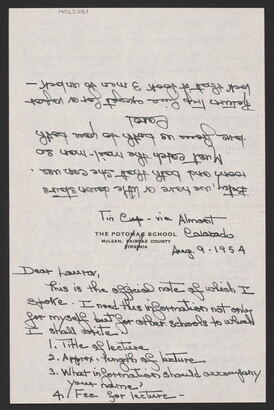 Tin Cup - via Almont
Colorado
THE POTOMAC SCHOOL
McLEAN, FAIRFAX COUNTY
VIRGINIA
Aug. 9 - 1954
Dear Laura,
This is the official note of which I
spoke. I need this information not only
for myself but for other schools to whom
I shall write.
1. Title of lecture
2. Approx. length of lecture
3. What information should accompany
your name,
4/ Fee for lecture -
we have a
room and both
that she can use.
Must catch the mail-man so
love from us both to you both
Carol
Return trip fine except for a
that it took 3 men to